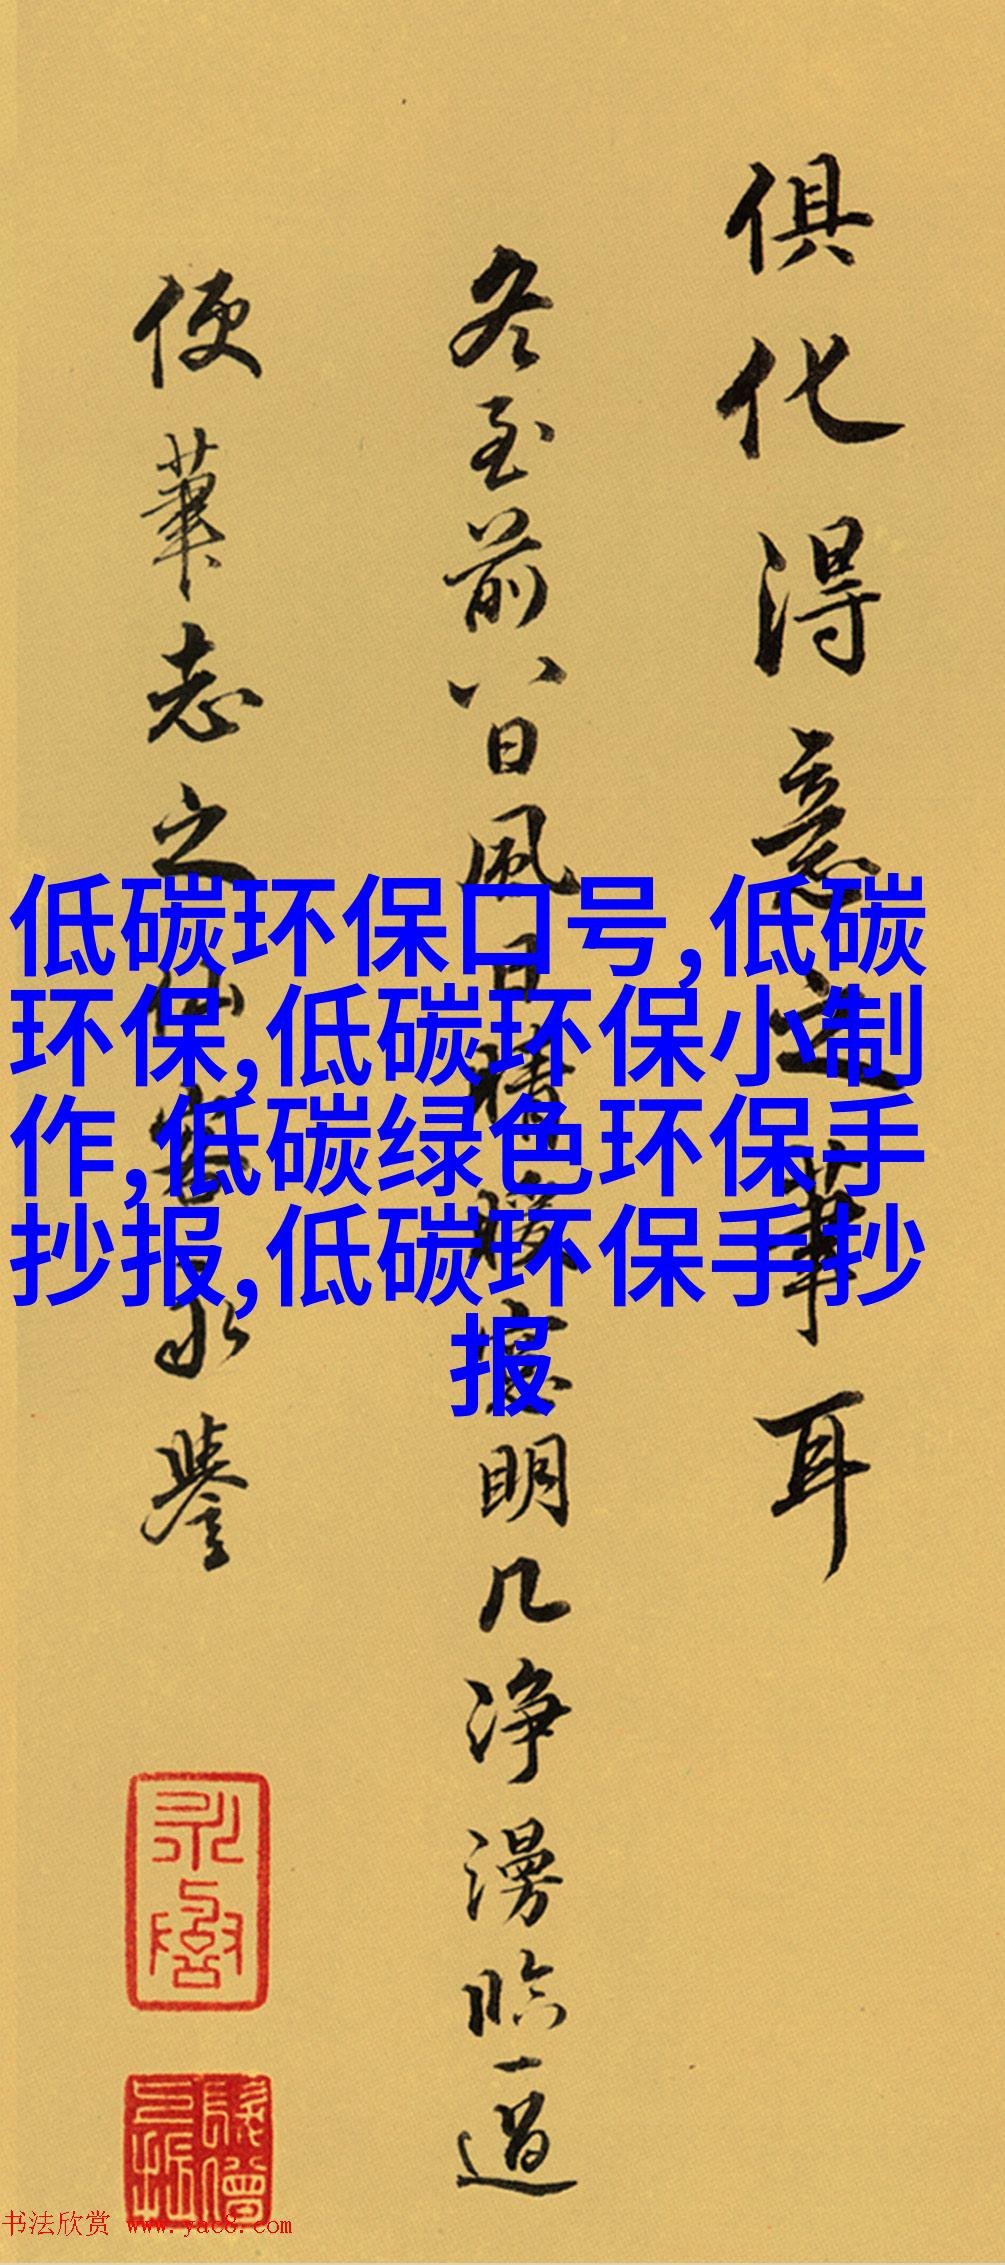 俱化得意之筆耳
冬至前八日風日晴暖窓明几淨漫臨一過
便筆志之
永譽
低碳环保口号,低碳
环保,低碳环保小制
作,低碳绿色环保手
抄报,低碳环保手抄
报
书法欣赏 www.yac8.com